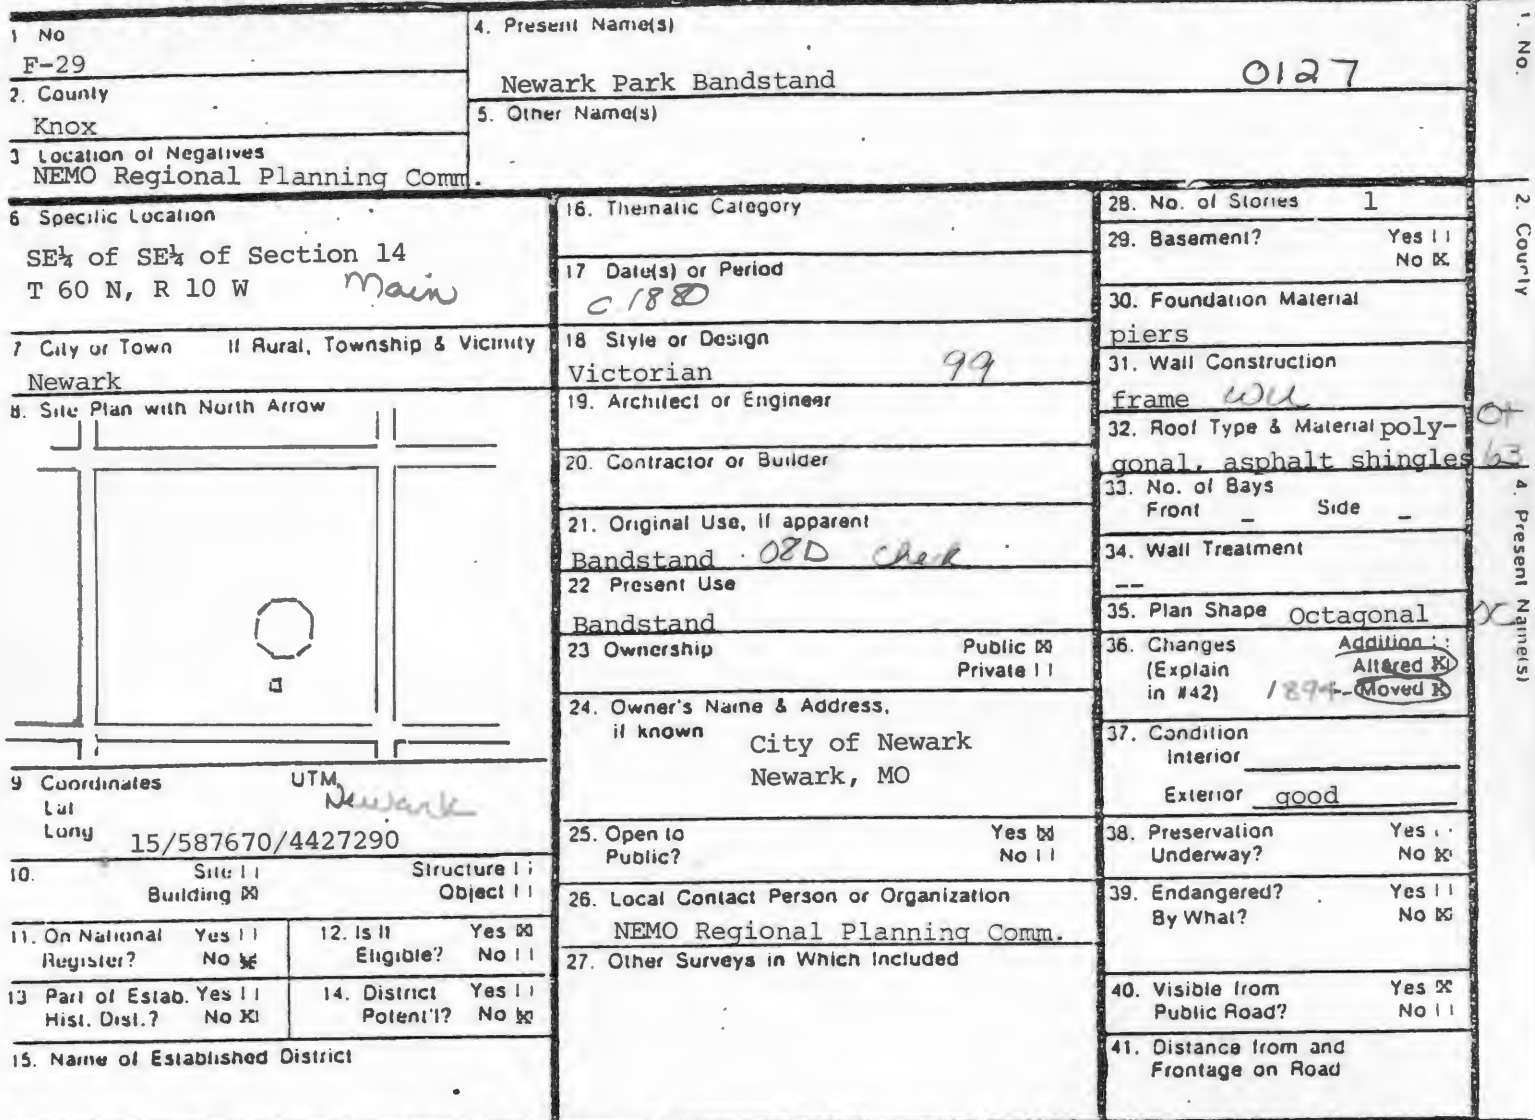 1 No
F-29
2. County
Knox
3 Location of Negatives
NEMO Regional Planning Comm.
4. Present Name(s)
Newark Park Bandstand 0127
5. Other Name(s)
6 Specific Location
SE¼ of SE¼ of Section 14
T 60 N, R 10 W Main
7 City or Town If Rural, Township & Vicinity
Newark
8. Site Plan with North Arrow
9 Coordinates UTM
Lat Newark
Long 15/587670/4427290
10. Site Structure
Building ☒ Object
11. On National Yes
Register? No ☒
12. Is It Yes ☒
Eligible? No
13 Part of Estab. Yes
Hist. Dist.? No ☒
14. District Yes
Potent'l? No ☒
15. Name of Established District
16. Thematic Category
17 Date(s) or Period
c 1880
18 Style or Design
Victorian 99
19. Architect or Engineer
20. Contractor or Builder
21. Original Use, if apparent
Bandstand 08D check
22 Present Use
Bandstand
23 Ownership Public ☒
Private
24. Owner's Name & Address,
if known
City of Newark
Newark, MO
25. Open to Yes ☒
Public? No
26. Local Contact Person or Organization
NEMO Regional Planning Comm.
27. Other Surveys in Which Included
28. No. of Stories 1
29. Basement? Yes
No ☒
30. Foundation Material
piers
31. Wall Construction
frame WU
32. Roof Type & Material poly-
gonal, asphalt shingles
33. No. of Bays
Front _ Side _
34. Wall Treatment
--
35. Plan Shape Octagonal
36. Changes Addition
(Explain Altered ☒
in #42) 1894 Moved ☒
37. Condition
Interior
Exterior good
38. Preservation Yes
Underway? No ☒
39. Endangered? Yes
By What? No ☒
40. Visible from Yes ☒
Public Road? No
41. Distance from and
Frontage on Road
1. No.
2. County
4. Present Name(s)
OT
63
OC